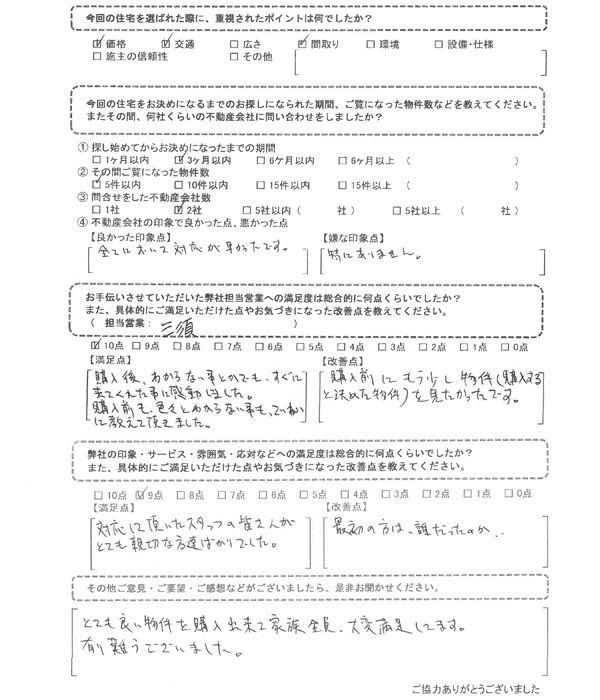 今回の住宅を選ばれた際に、重視されたポイントは何でしたか？
☑価格 ☑交通 □広さ ☑間取り □環境 □設備・仕様
□施主の信頼性 □その他
今回の住宅をお決めになるまでのお探しになられた期間、ご覧になった物件数などを教えてください。
またその間、何社くらいの不動産会社に問い合わせをしましたか？
① 探し始めてからお決めになったまでの期間
□1ヶ月以内 ☑3ヶ月以内 □6ケ月以内 □6ヶ月以上 （ ）
② その間ご覧になった物件数
☑5件以内 □10件以内 □15件以内 □15件以上 （ ）
③ 問合せをした不動産会社数
□1社 ☑2社 □5社以内（ 社） □5社以上 （ 社）
④ 不動産会社の印象で良かった点、悪かった点
【良かった印象点】 【嫌な印象点】
全てにおいて対応が早かったです。 特にありません。
お手伝いさせていただいた弊社担当営業への満足度は総合的に何点くらいでしたか？
また、具体的にご満足いただけた点やお気づきになった改善点を教えてください。
（ 担当営業： 三須 ）
☑10点 □9点 □8点 □7点 □6点 □5点 □4点 □3点 □2点 □1点 □0点
【満足点】 【改善点】
購入後、わからない事とかでも、すぐに 購入前にもう少し物件(購入する
来てくれた事に感動しました。 と決めた物件)を見たかったです。
購入前も、色々とわからない事も、ていねい
に教えて頂きました。
弊社の印象・サービス・雰囲気・応対などへの満足度は総合的に何点くらいでしたか？
また、具体的にご満足いただけた点やお気づきになった改善点を教えてください。
□10点 ☑9点 □8点 □7点 □6点 □5点 □4点 □3点 □2点 □1点 □0点
【満足点】 【改善点】
対応して頂いたスタッフの皆さんが 最初の方は、誰だったのか...
とても親切な方達ばかりでした。
その他ご意見・ご要望・ご感想などがございましたら、是非お聞かせください。
とても良い物件を購入出来て家族全員、大変満足してます。
有り難うございました。
ご協力ありがとうございました